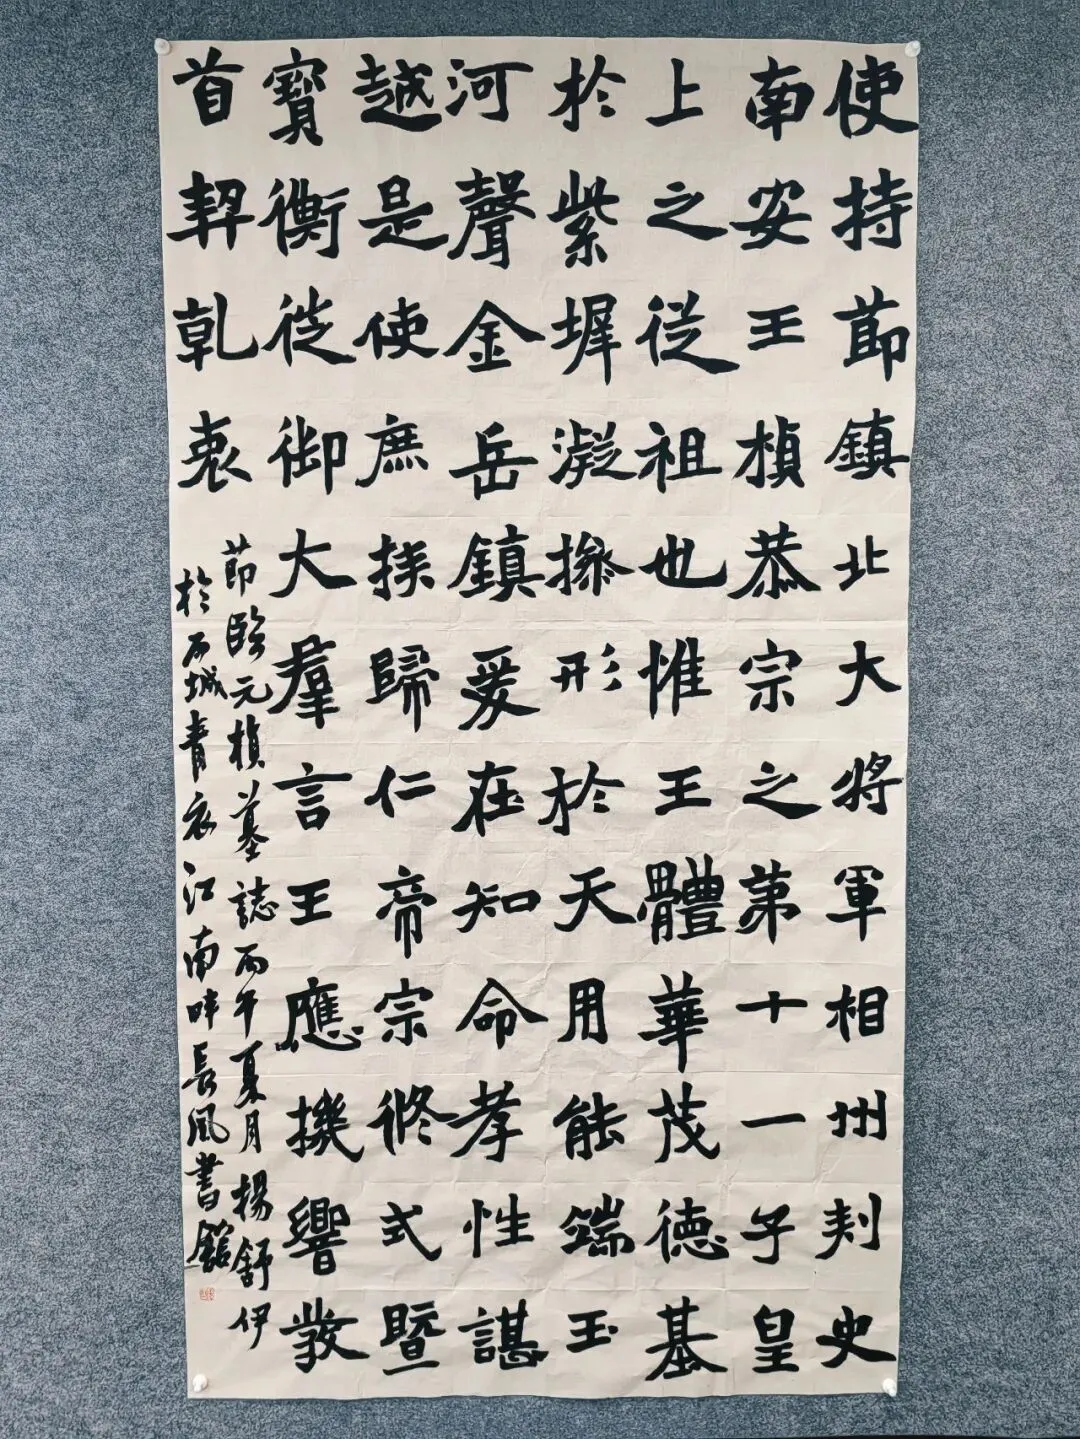 使持莭鎮北大將軍相州刾史
南安王楨恭宗之苐十一子皇
上之從祖也惟王體華茂德基
於紫墀凝操形於天用能端玉
河聲金岳鎮爰在知命孝性諶
越是使庶族歸仁帝宗攸式暨
寶衡徙御大羣言王應機響發
首契乾衷
莭臨元楨墓誌丙午夏月楊舒伊
於石城青衣江南畔長風書館